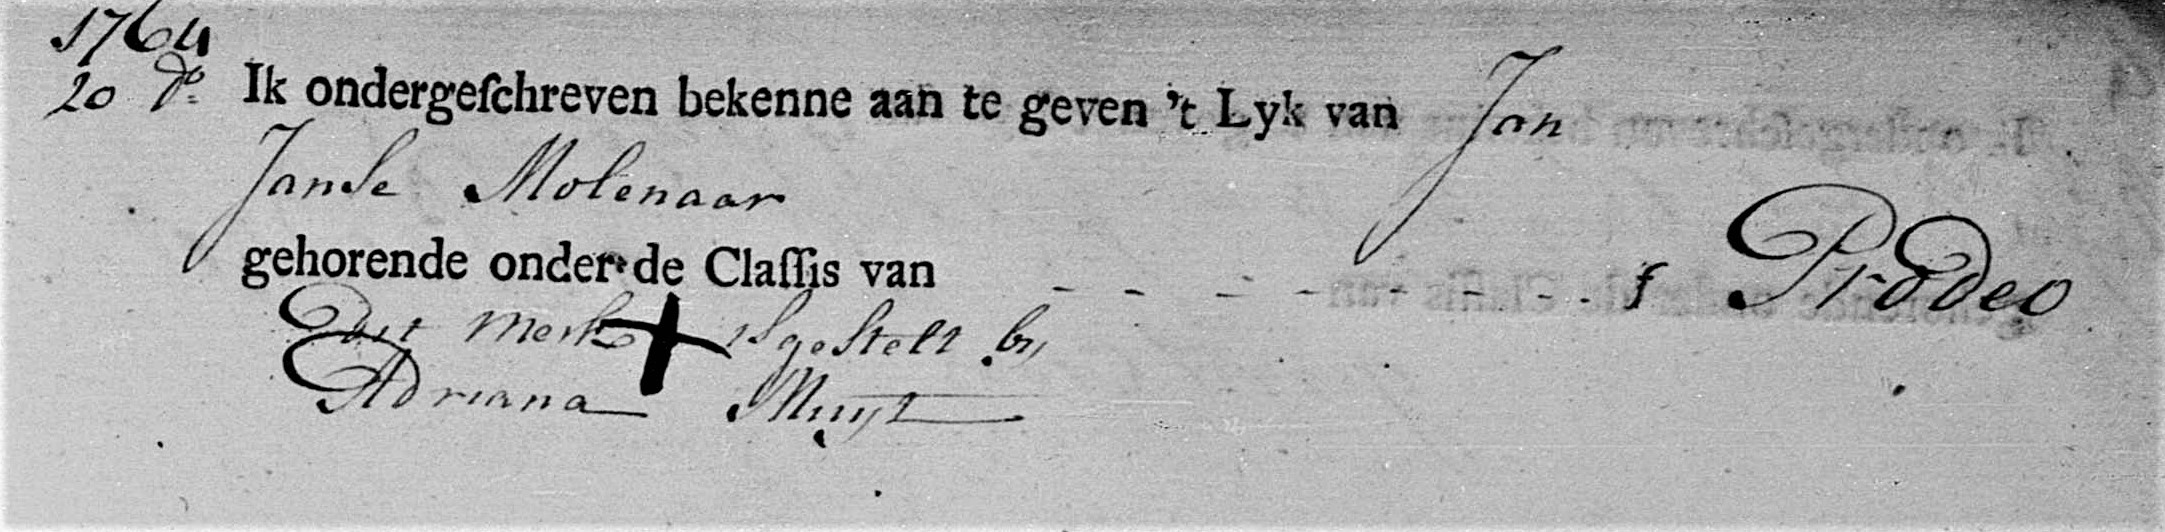 1764
20 do Ik ondergeſchreven bekenne aan te geven 't Lyk van Jan
Janse Molenaar
gehorende onder de Claſſis van - - - - - - - - - f Prodeo
Dit Merk + is gestelt by
Adriana Muyt